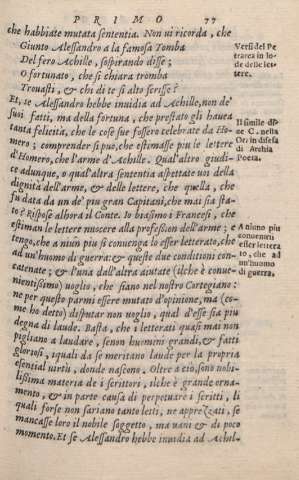 PRIMO 77
che habbiate mutata sententia. Non ui ricorda, che
Giunto Alessandro a la famosa Tomba
Del fero Achille, sospirando disse;
O fortunato, che sì chiara tromba
Trouasti, & chi di te sì alto scrisse?
Versi del Pe
trarca in lo-
de delle let-
tere.
Et, se Alessandro hebbe inuidia ad Achille, non de'
suoi fatti, ma della fortuna, che prestato gli hauea
tanta felicità, che le cose sue fossero celebrate da Ho-
mero; comprender si può, che estimasse piu le lettere
d'Homero, che l'arme d'Achille. Qual'altro giudi-
ce adunque, o qual'altra sententia aspettate uoi della
dignità dell'arme, & delle lettere, che quella, che
fu data da un de' piu gran Capitani, che mai sia sta-
to? Rispose alhora il Conte. Io biasimo i Francesi, che
estiman le lettere nuocere alla profession dell'arme; e
tengo, che a niun piu si conuenga lo esser litterato, che
ad un'huomo di guerra: & queste due conditioni con-
catenate; & l'una dall'altra aiutate (ilche è conue-
nientissimo) uoglio, che siano nel nostro Cortegiano:
ne per questo parmi esser mutato d'opinione, ma (co-
me ho detto) disputar non uoglio, qual d'esse sia piu
degna di laude. Basta, che i letterati quasi mai non
pigliano a laudare, senon huomini grandi, & fatti
gloriosi, iquali da se meritano laude per la propria
essential uirtù, donde nascono. Oltre a ciò, sono nobi-
lissima materia de i scrittori, ilche è grande orna-
mento, & in parte causa di perpetuare i scritti, li
quali forse non sariano tanto letti, ne apprezzati, se
mancasse loro il nobile soggetto, ma uani & di poco
momento. Et se Alessandro hebbe inuidia ad Achil-
Il simile di-
ce C. nella
Or: in difesa
di Archia
Poeta.
A niuno piu
conuenirsi
esser lettera
to, che ad
un'huomo
di guerra.